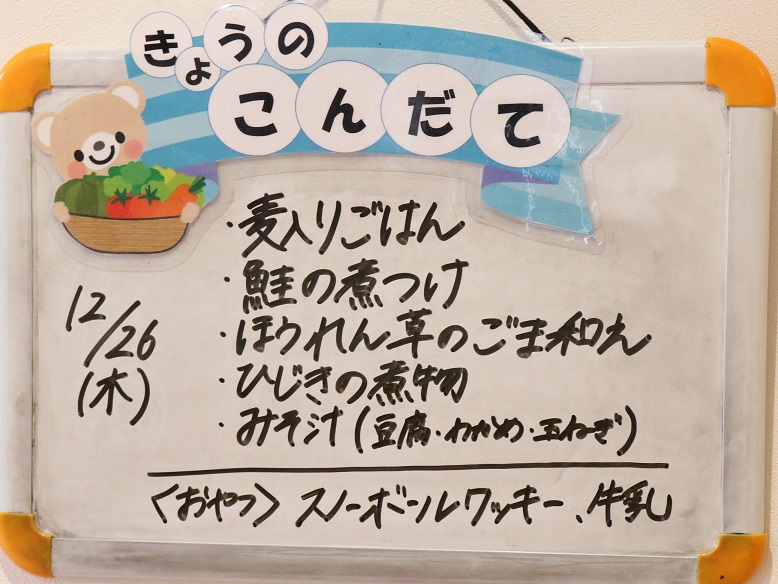 きょうの
こんだて
12/26
(木)
・麦入りごはん
・鮭の煮つけ
・ほうれん草のごま和え
・ひじきの煮物
・みそ汁(豆腐・わかめ・玉ねぎ)
〈おやつ〉スノーボールクッキー、牛乳